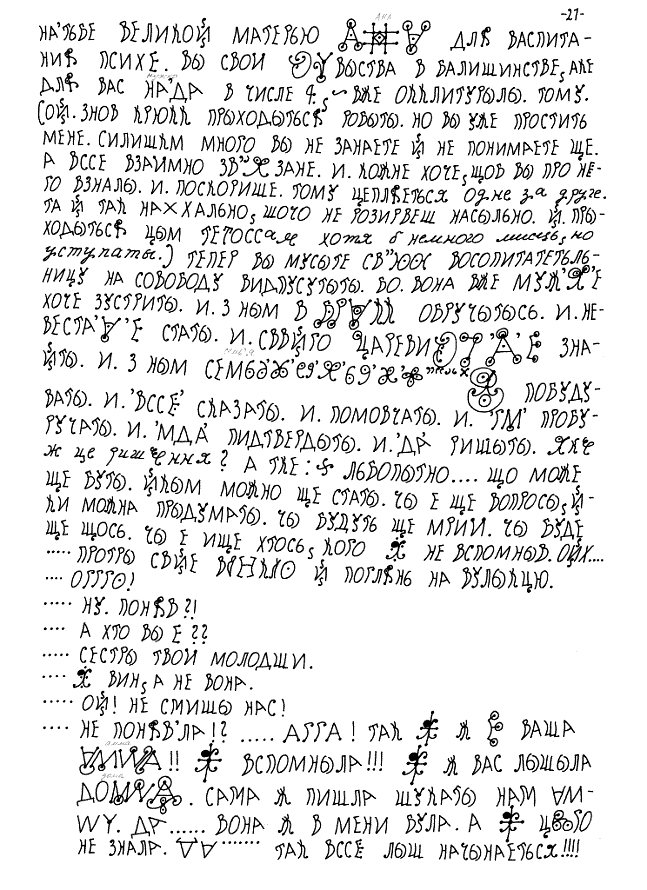 -27-
НА'ТЬВЕ ВЕЛИКОЙ МАТЕРЬЮ ДЛЯ ВАСПИТА-
НИЯ ПСИХЕ. ВЫ СВОИ ВЫСТВА В БАЛИШИНСТВЕ, АЖЕ
ДЛЯ ВАС НА'ДА В ЧИСЛЕ 4, ВЖЕ ОККЛИТУРЫЛЫ. ТОМУ.
(ОЙ. ЗНОВ КРЮКК ПРЫХОДЫТЬСЯ РОБЫТЫ. НО ВЫ УЖЕ ПРОСТИТЬ
МЕНЕ. СИЛИШКМ МНОГО ВЫ НЕ ЗАНАЕТЕ Й НЕ ПОНИМАЕТЕ ЩЕ.
А ВССЕ ВЗАИМНО ЗВ"Я ЗАНЕ. И. КОЖНЕ ХОЧЕ, ЩОВ ВЫ ПРО НЕ-
ГО ВЗНАЛЫ. И. ПОСКОРИШЕ. ТОМУ ЦЕПЛЯЕТЬСЯ одне за друге.
ТА Й ТАК НАХХАЛЬНО, ШОЧО НЕ РОЗИРВЕШ НАСЫЛЬНО. Й. ПРЫ-
ХОДЫТЬСЯ ЦЫМ ТЕГОССам хотя б немного мисць, но
уступаты.) ТЕПЕР ВЫ МУСЫТЕ СВ"ЮЮ ВОСОПИТАТЕТЬЛЬ-
НИЦУ НА СОВОБОДУ ВИДПУСТЫТЫ. БО. ВОНА ВЖЕ МУЖ'Я'Е
ХОЧЕ ЗУСТРИТЫ. И. З НЫМ В ОБРУЧЫТЫСЬ. И. НЕ-
ВЕСТА' 'Е СТАТЫ. И. СВВИГО ЦАРЕВИ ЗНА-
ЙТЫ. И. З НЫМ ПОБУДУ-
ВАТЫ. И. 'ВССЕ' СКАЗАТЫ. И. ПОМОВЧАТЫ. И. 'ГМ' ПРОБУ-
РУЧАТЫ. И. 'МДА' ПИДТВЕРДЫТЫ. И. 'ДА' РИШЫТЫ. ЯКЕ
ж це ришення? А ТКЕ: ЛЬБОПЫТНО.... ЩО МОЖЕ
ЩЕ БУТЫ. ЙКЫМ МОЖНО ЩЕ СТАТЫ. ЧЫ Е ЩЕ ВОПРОСЫ, Й-
КИ МОЖНА ПРЫДУМАТЫ. ЧЫ БУДУТЬ ЩЕ МРИИ. ЧЫ БУДЕ
ЩЕ ЩОСЬ. ЧЫ Е ИЩЕ ХТОСЬ, КОГО Я НЕ ВСПОМНЫВ. ОЙХ....
..... ПРОТРЫ СВІЕ Й ПОГЛЯНЬ НА ВУЛЫКЦЮ.
.... ОГГГО!
..... НУ. ПОНЯВ?!
.... А ХТО ВЫ Е??
..... СЕСТРЫ ТВОИ МОЛОДШИ.
..... Я ВИН, А НЕ ВОНА.
..... ОЙ! НЕ СМИШЫ НАС!
.... НЕ ПОНЯВ'ЛА!? ..... АГГА! ТАК Я Ж Є ВАША
!! Я ВСПОМНЫЛА!!! Я Ж ВАС ЛЫШЫЛА
. САМА Ж ПИШЛА ШУКАТЫ НАМ
. ДА...... ВОНА Ж В МЕНИ БУЛА. А Я ЦЬОГО
НЕ ЗНАЛА. ....... ТАК ВССЕ ЛЫШ НАЧЫНАЕТЬСЯ!!!!